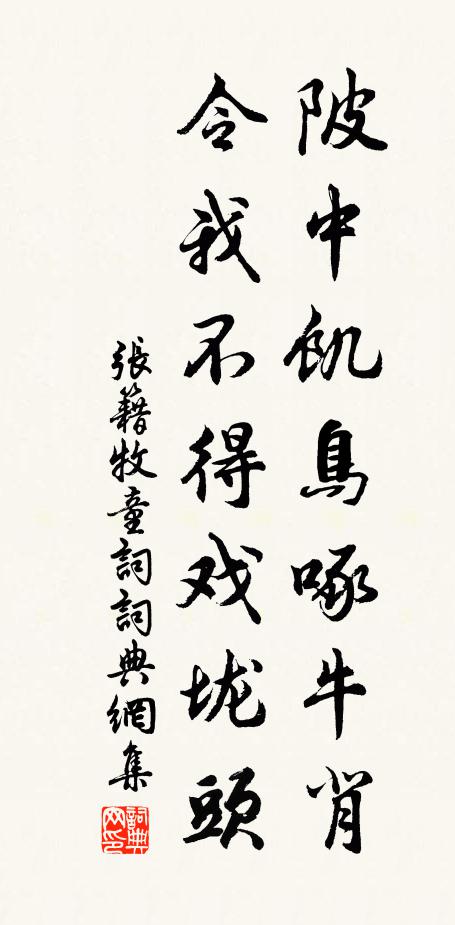 陂中飢鳥啄牛背
令我不得戏垅頭
張籍牧童詞詞典網集
詞典网印